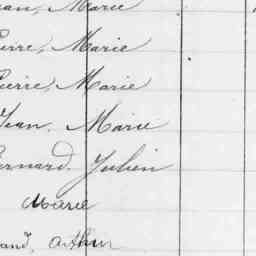 ean, Marie
ierre, Marie
ierre, Marie
Jean, Marie
ernard, Julien
Marie
and, Arthur